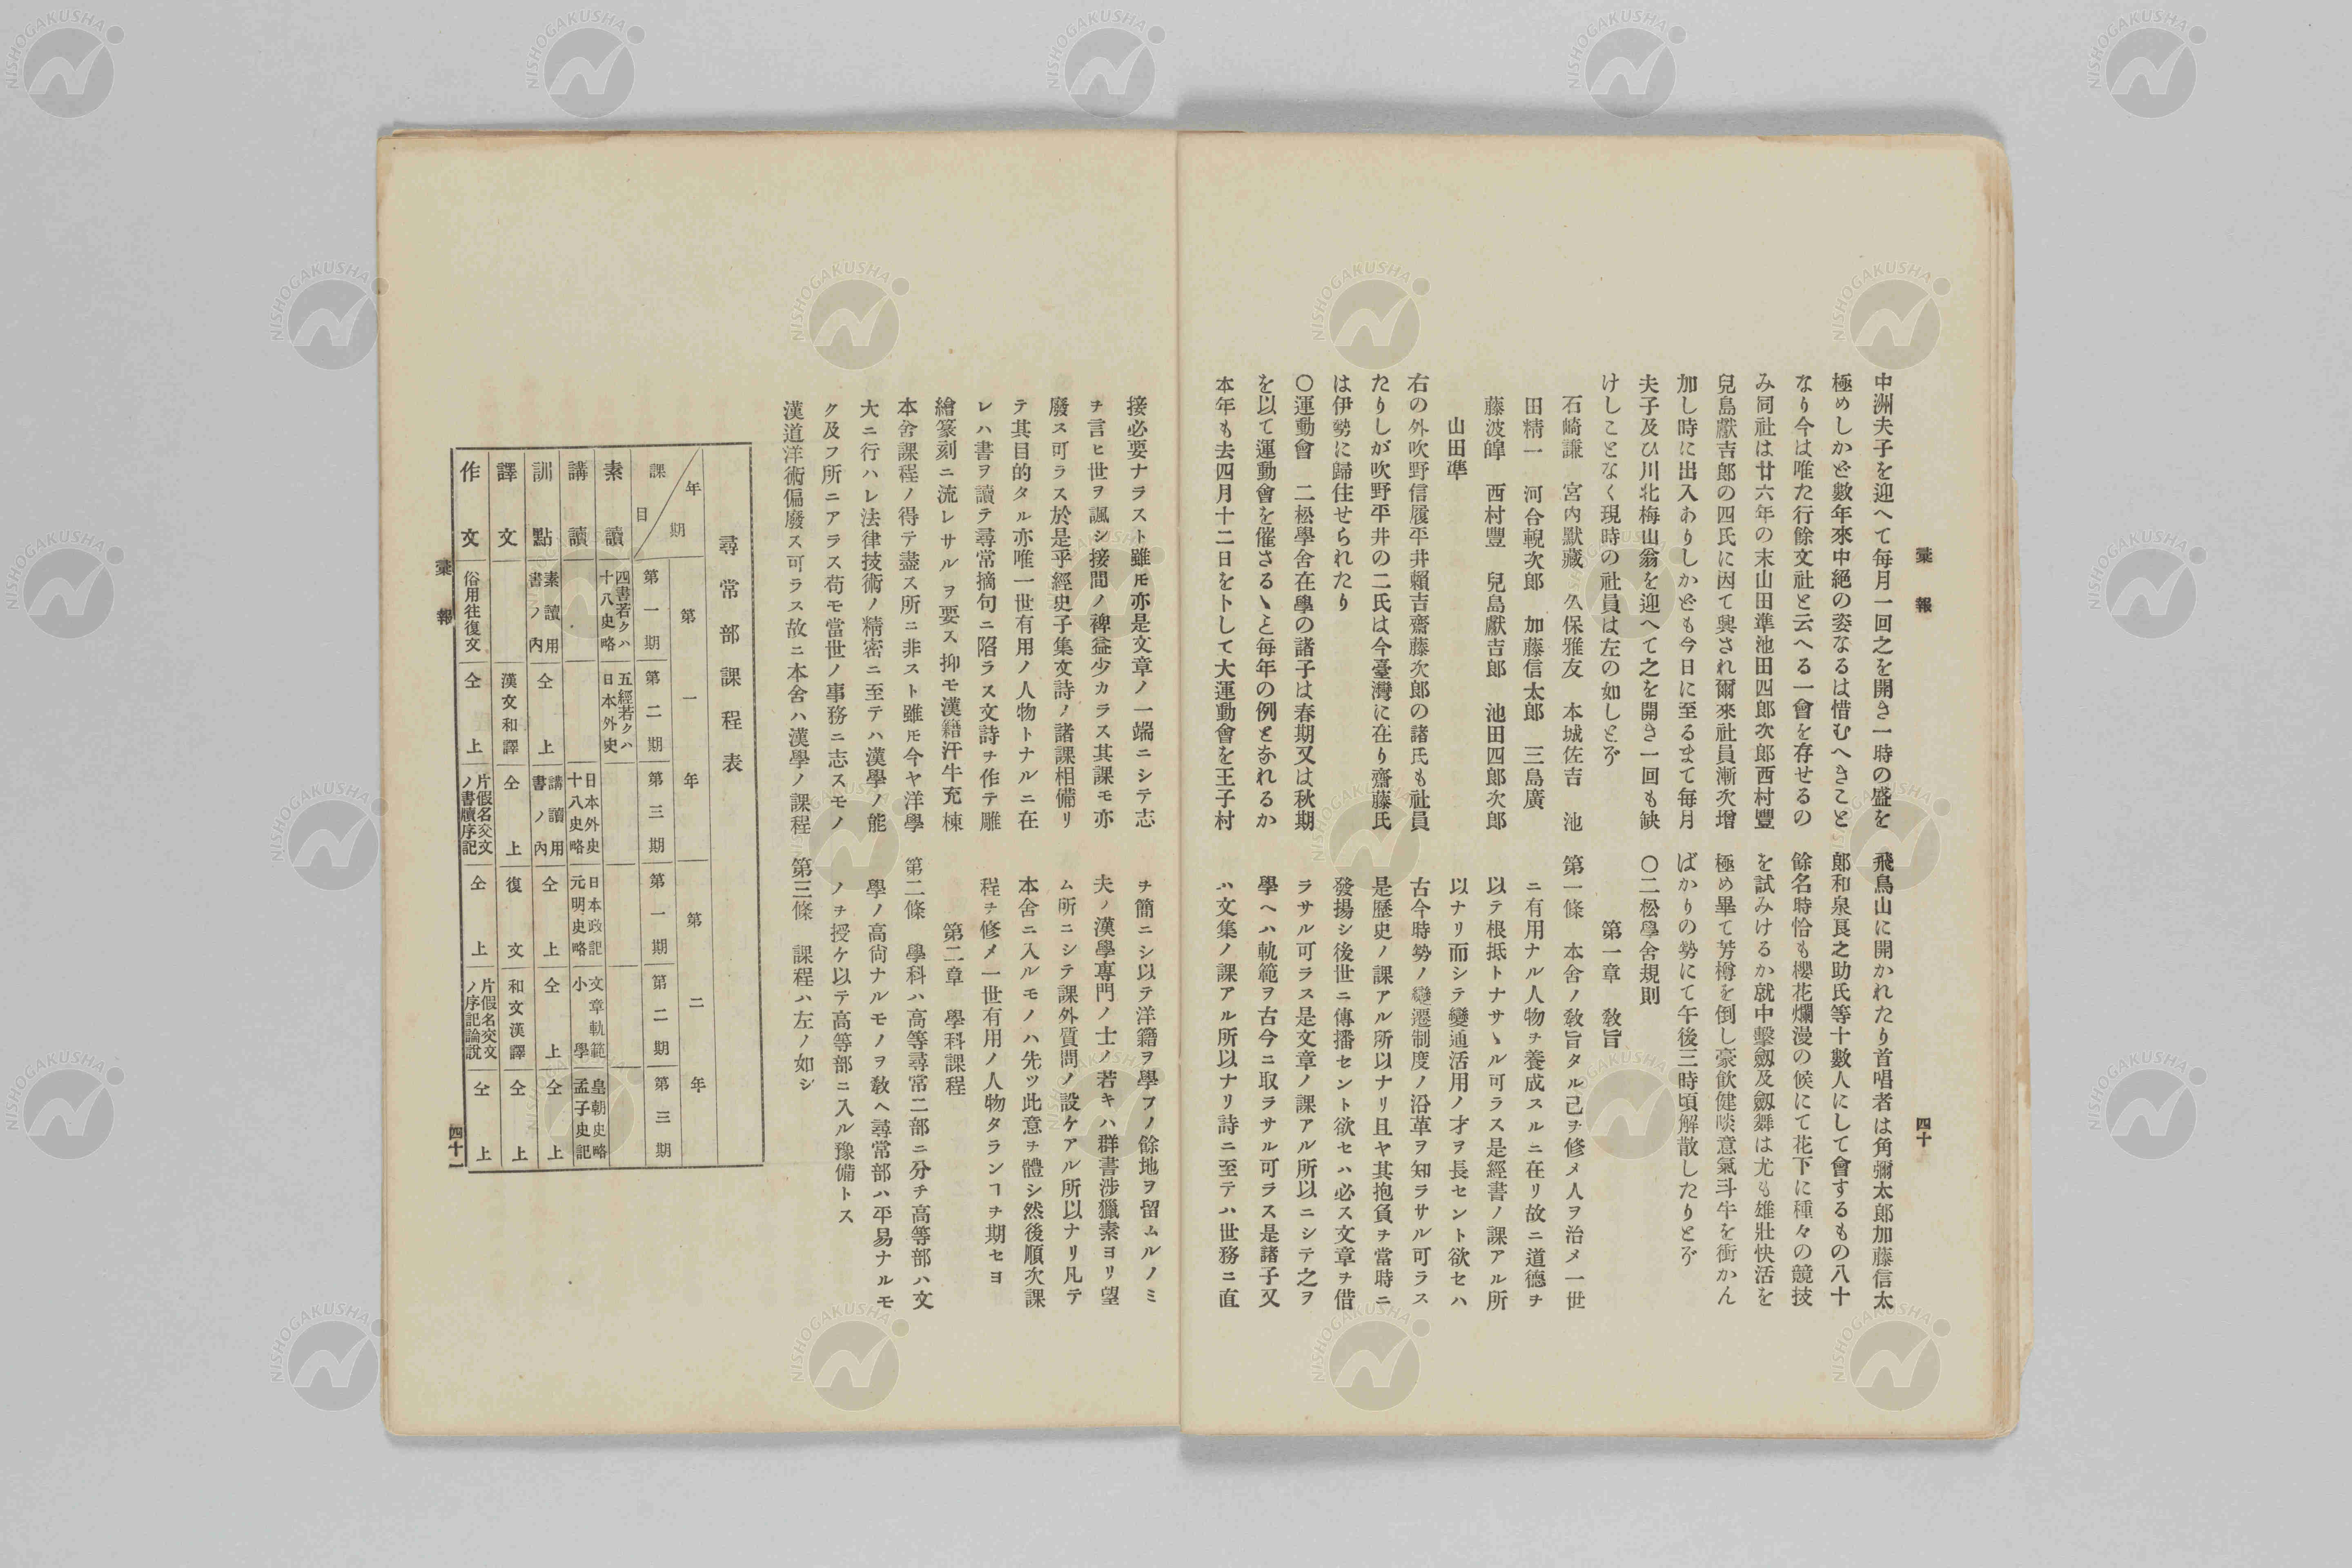 彙報
四十
中洲夫子を迎へて毎月一回之を開き一時の盛を
極めしかど數年來中絶の姿なるは惜むへきこと
なり今は唯た行餘文社と云へる一會を存せるの
み同社は廿六年の末山田準池田四郎次郎西村豐
兒島獻吉郎の四氏に因て興され爾來社員漸次增
加し時に出入ありしかども今日に至るまて毎月
夫子及ひ川北梅山翁を迎へて之を開き一回も缺
けしことなく現時の社員は左の如しとぞ
石崎謙 宮內默藏 久保雅友 本城佐吉 池
田精一 河合輗次郎 加藤信太郎 三島廣
藤波皞 西村豐 兒島獻吉郎 池田四郎次郎
山田準
右の外吹野信履平井賴吉齋藤次郎の諸氏も社員
たりしが吹野平井の二氏は今臺灣に在り齋藤氏
は伊勢に歸住せられたり
〇運動會 二松學舍在學の諸子は春期又は秋期
を以て運動會を催さるゝと每年の例となれるか
本年も去四月十二日をトして大運動會を王子村
飛鳥山に開かれたり首唱者は角彌太郎加藤信太
郎和泉良之助氏等十數人にして會するもの八十
餘名時恰も櫻花爛漫の候にて花下に種々の競技
を試みけるか就中擊劔及劔舞は尤も雄壯快活を
極め畢て芳樽を倒し豪飮健啖意氣斗牛を衝かん
ばかりの勢にて午後三時頃解散したりとぞ
〇二松學舍規則
第一章 敎旨
第一條 本舍ノ敎旨タル己ヲ修メ人ヲ治メ一世
ニ有用ナル人物ヲ養成スルニ在リ故ニ道德ヲ
以テ根抵トナサヽル可ラス是經書ノ課アル所
以ナリ而シテ變通活用ノ才ヲ長セント欲セハ
古今時勢ノ變遷制度ノ沿革ヲ知ラサル可ラス
是歷史ノ課アル所以ナリ且ヤ其抱負ヲ當時ニ
發揚シ後世ニ傳播セント欲セハ必ス文章ヲ借
ラサル可ラス是文章ノ課アル所以ニシテ之ヲ
學ヘハ軌範ヲ古今ニ取ラサル可ラス是諸子又
ハ文集ノ課アル所以ナリ詩ニ至テハ世務ニ直
接必要ナラスト雖モ亦是文章ノ一端ニシテ志
ヲ言ヒ世ヲ諷シ接間ノ裨益少カラス其課モ亦
廢ス可ラス於是乎經史子集文詩ノ諸課相備リ
テ其目的タル亦唯一世有用ノ人物トナルニ在
レハ書ヲ讀テ尋常摘句ニ陷ラス文詩ヲ作テ雕
繪篆刻ニ流レサルヲ要ス抑モ漢籍汗牛充棟
本舍課程ノ得テ盡ス所ニ非スト雖モ今ヤ洋學
大ニ行ハレ法律技術ノ精密ニ至テハ漢學ノ能
ク及フ所ニアラス苟モ當世ノ事務ニ志スモノ
漢道洋術偏廢ス可ラス故ニ本舍ハ漢學ノ課程
ヲ簡ニシ以テ洋籍ヲ學フノ餘地ヲ留ムルノミ
夫ノ漢學專門ノ士ノ若キハ群書涉獵素ヨリ望
ム所ニシテ課外質問ノ設ケアル所以ナリ凡テ
本舍ニ入ルモノハ先ツ此意ヲ體シ然後順次課
程ヲ修メ一世有用ノ人物タランヿヲ期セヨ
第二章 學科課程
第二條 學科ハ高等尋常二部ニ分チ高等部ハ文
學ノ高尙ナルモノヲ敎ヘ尋常部ハ平易ナルモ
ノヲ授ケ以テ高等部ニ入ル豫備トス
第三條 課程ハ左ノ如シ
尋常部課程表
年期 課目 第一年 第二年
第一期 第二期 第三期 第一期 第二期 第三期
素讀 四書若クハ十八史略 五經若クハ日本外史
講讀 日本外史十八史略 日本政記元明史略 文章軌範小學 皇朝史略孟子史記
訓點 素讀用書ノ內 仝上 講讀用書ノ內 仝上 仝上 仝上
譯文 漢文和譯 仝上 復文 和文漢譯 仝上
作文 俗用往復文 仝上 片假名交文ノ書牘序記 仝上 片假名交文ノ序記論說 仝上
彙報
四十一